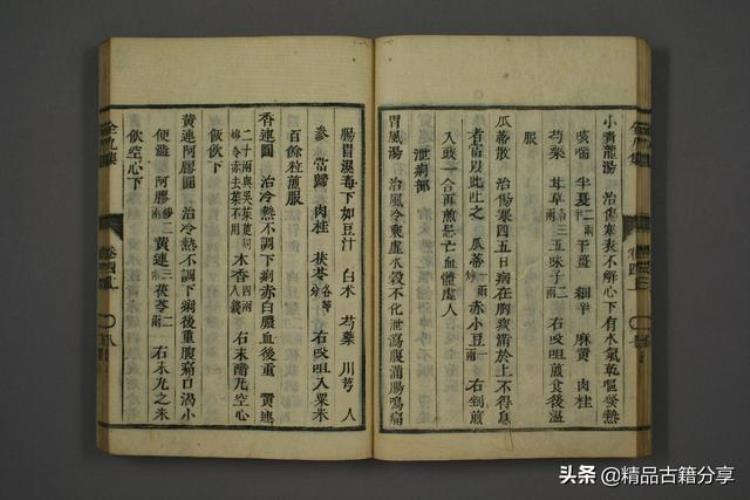 小青龍湯 治傷寒表不解心下有水氣乾嘔發熱
咳喘 半夏 干薑 細辛 麻黃 肉桂
芍藥 甘草 五味子 右㕮咀煎食後溫
服
瓜蒂散 治傷寒四五日病在胸 於上不得息
者當以此吐之 瓜蒂一兩 赤小豆一兩 右剉煎
入豉一合再煎忌亡血體虛人
泄痢部
胃風湯 治風冷乘虛水穀不化泄瀉腹滿腸鳴痛
全九集
卷四
腸胃濕毒下如豆汁 白朮 芍藥 川芎 人
參 當歸 肉桂 茯苓各等分 右㕮咀入粟米
百餘粒煎服
香連圓 治冷熱不調下痢赤白膿血後重 黃連
二十兩與吳茱萸同炒令赤去茱不用 木香四兩八錢 右末醋丸空心
飯飲下
黃連阿膠圓 治冷熱不調下痢後重腹痛口渴小
便澀 阿膠炒二兩 黃連三兩 茯苓二兩 右末丸之米
飲空心下
頭条 @精品古籍分享